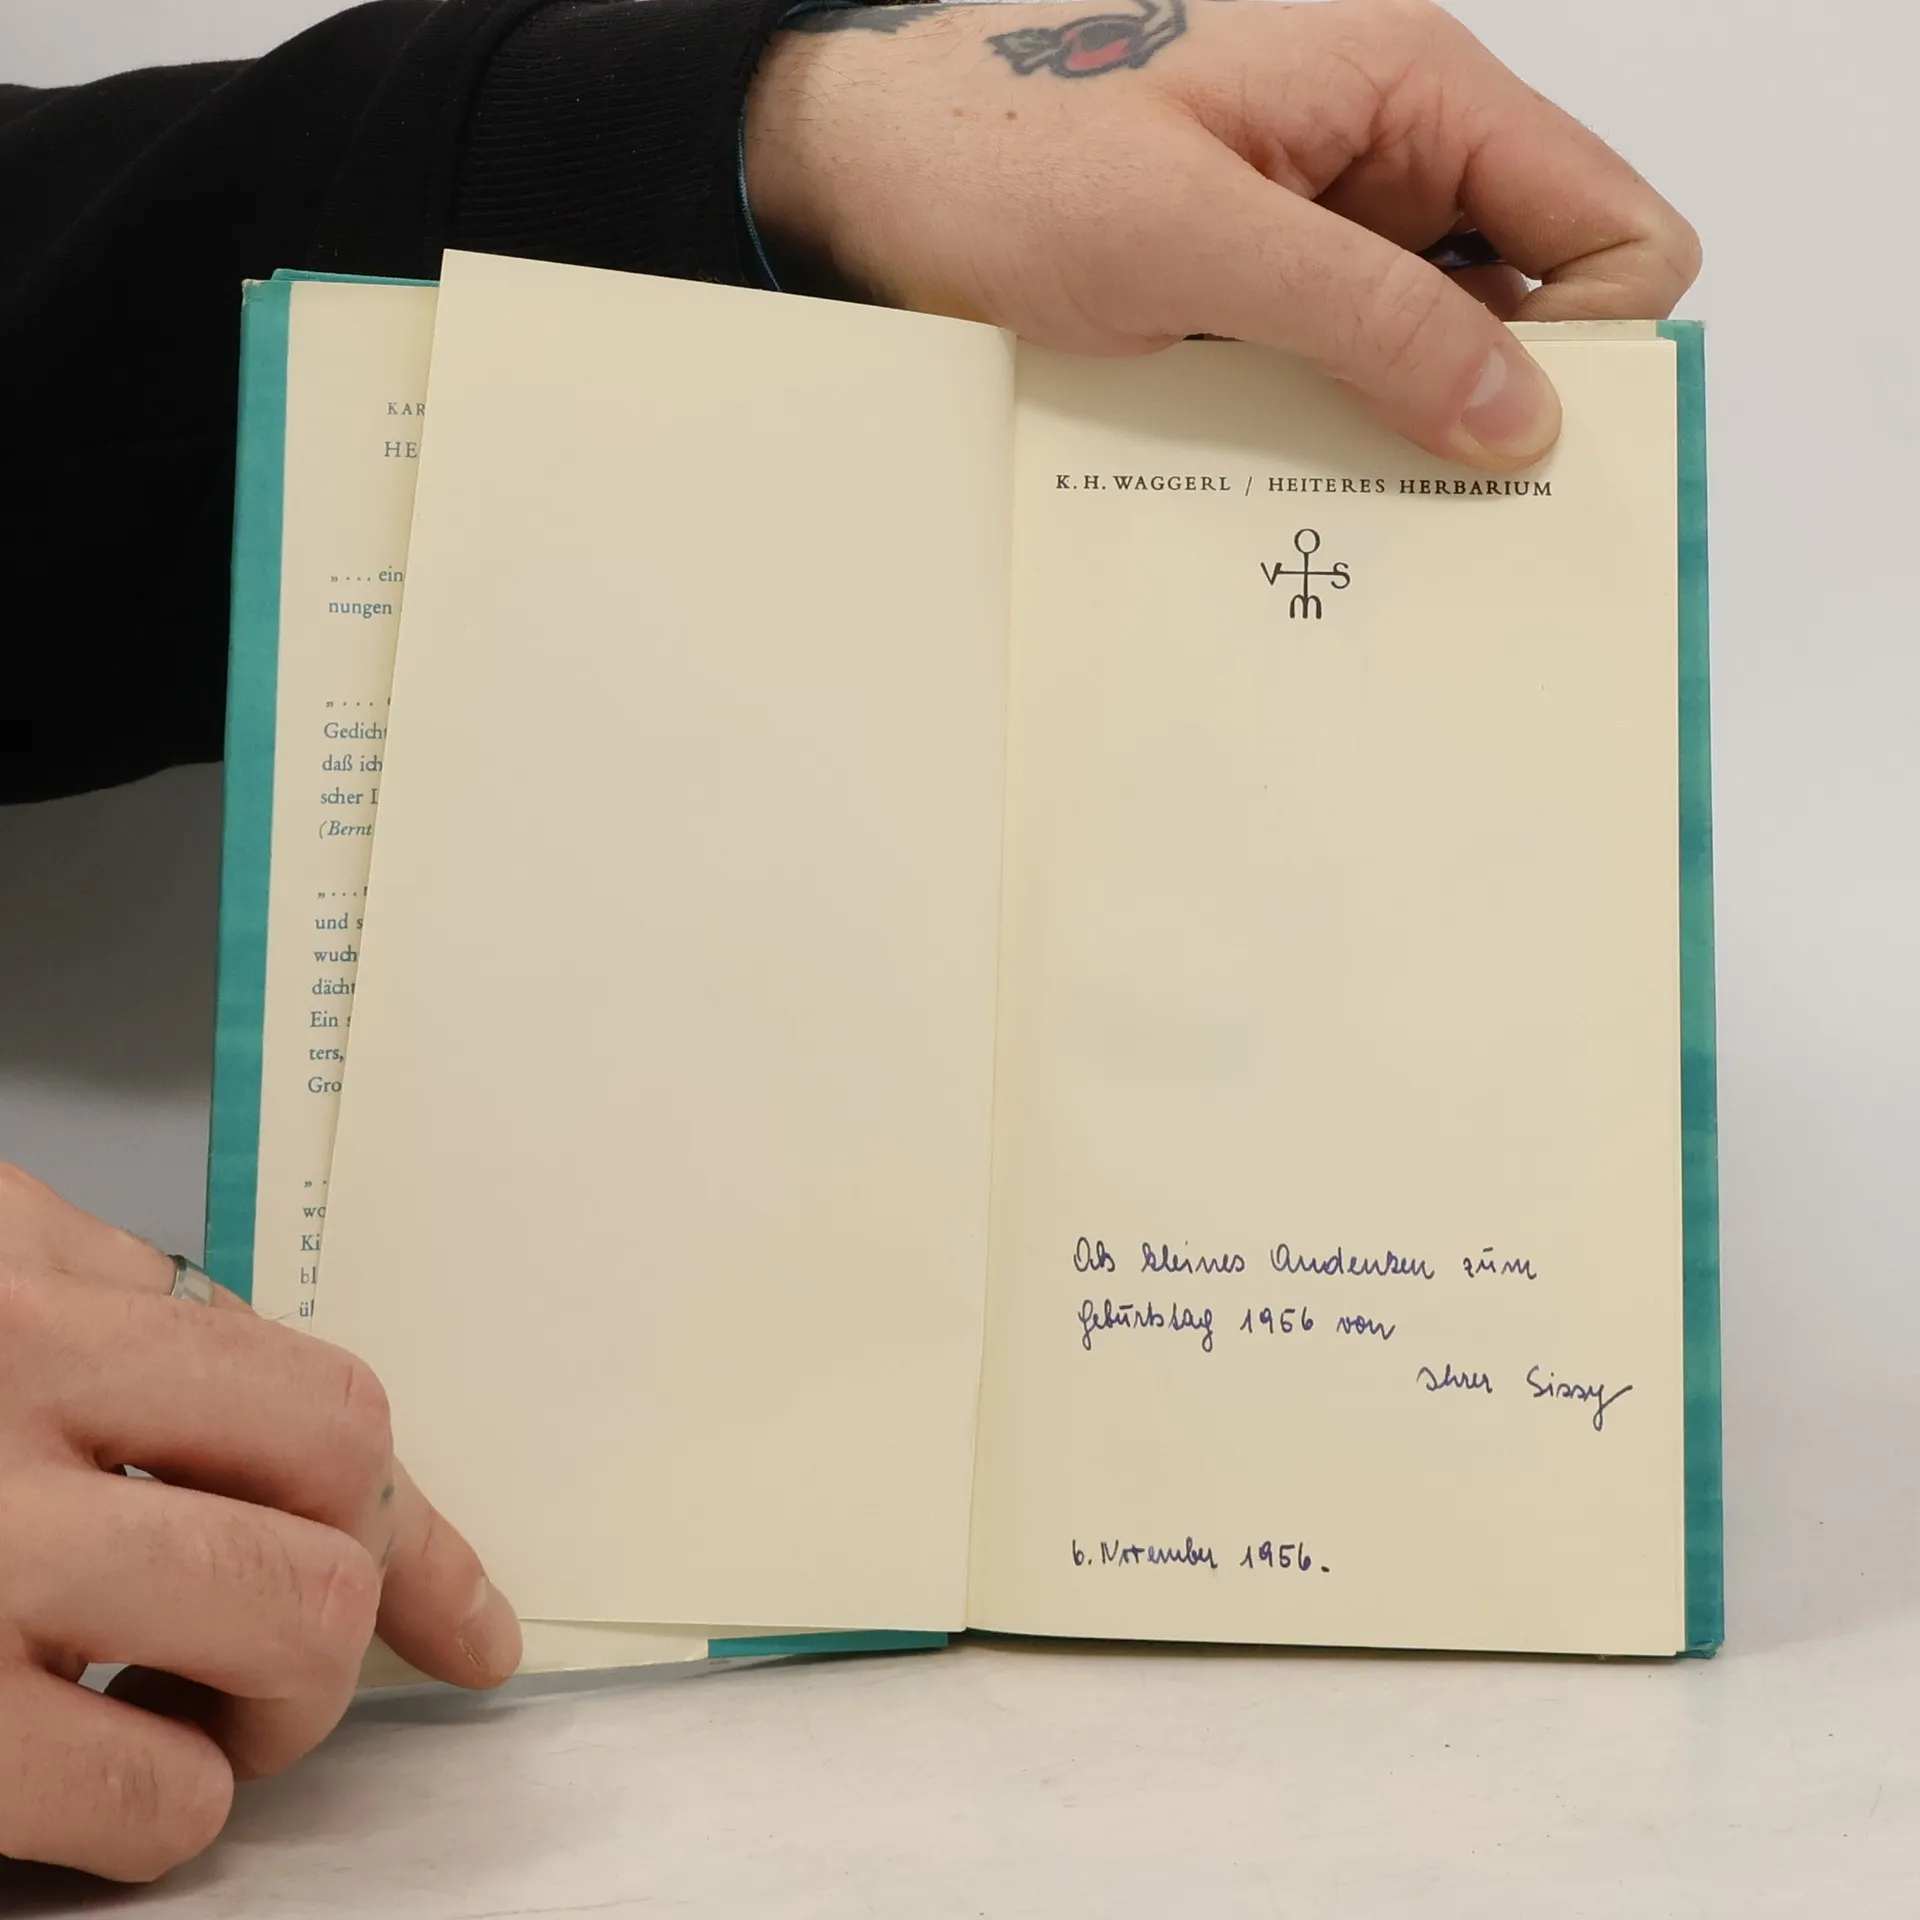 KAR
HE
„... ein
nungen
„...
Gedicht
daß ich
scher
(Bernt
„...
und s
wuch
dächt
Ein s
ters,
Gro
„
wo
Ki
bl
ül
K. H. WAGGERL / HEITERES HERBARIUM
O
V S
m
Als kleines Andenken zum
Geburtstag 1956 von
Ihrer Sissy
6. November 1956.